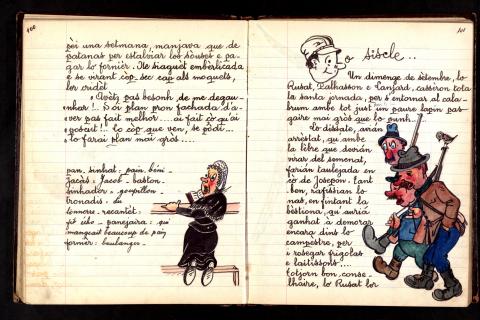 100
pèi una setmana, manjava que de
patanas per estalviar los sòuses e pa-
gar lo fornièr. Ne siaguèt emberlicada
e se virant còp sec cap als moquets,
lor cridèt
- Avètz pas besonh de me degau-
nhar!! S'ai plan pron fachada d'a-
ver pas fait melhor... ai fait çò qu'ai
poscut!! Lo còp que ven, se pòdi...
lo farai plan mai gròs....
pan, sinhat: pain, béni -
jacès: Jacob - baston.
sinhador - goupillon
tronadís - du
tonnerre - recantèt:
panejaira: qui
mangeait beaucoup de pain
fornièr: boulanger -
101
o siscle...
Un dimenge de setembre, lo
Rusat, Palhasson e Tanfard, casseron tota
la santa jornada, per s'entornar al cala-
brum amb tot just un paure lapin pas
gaire mai gròs que lo punh...
Lo dissate, anán
arrestat, qu'amb
la lèbre que devián
virar del semenat,
farián taulejada en
cò de Josepon. Tant
bon, rafissián lo
nas, en fintant la
bèstiona, qu'auriá
ganhat a demorar
encara dins lo
campestre, per
i rosegar frigolas
e laitissons....
Totjorn bon conse-
lhaire, lo Rusat lor